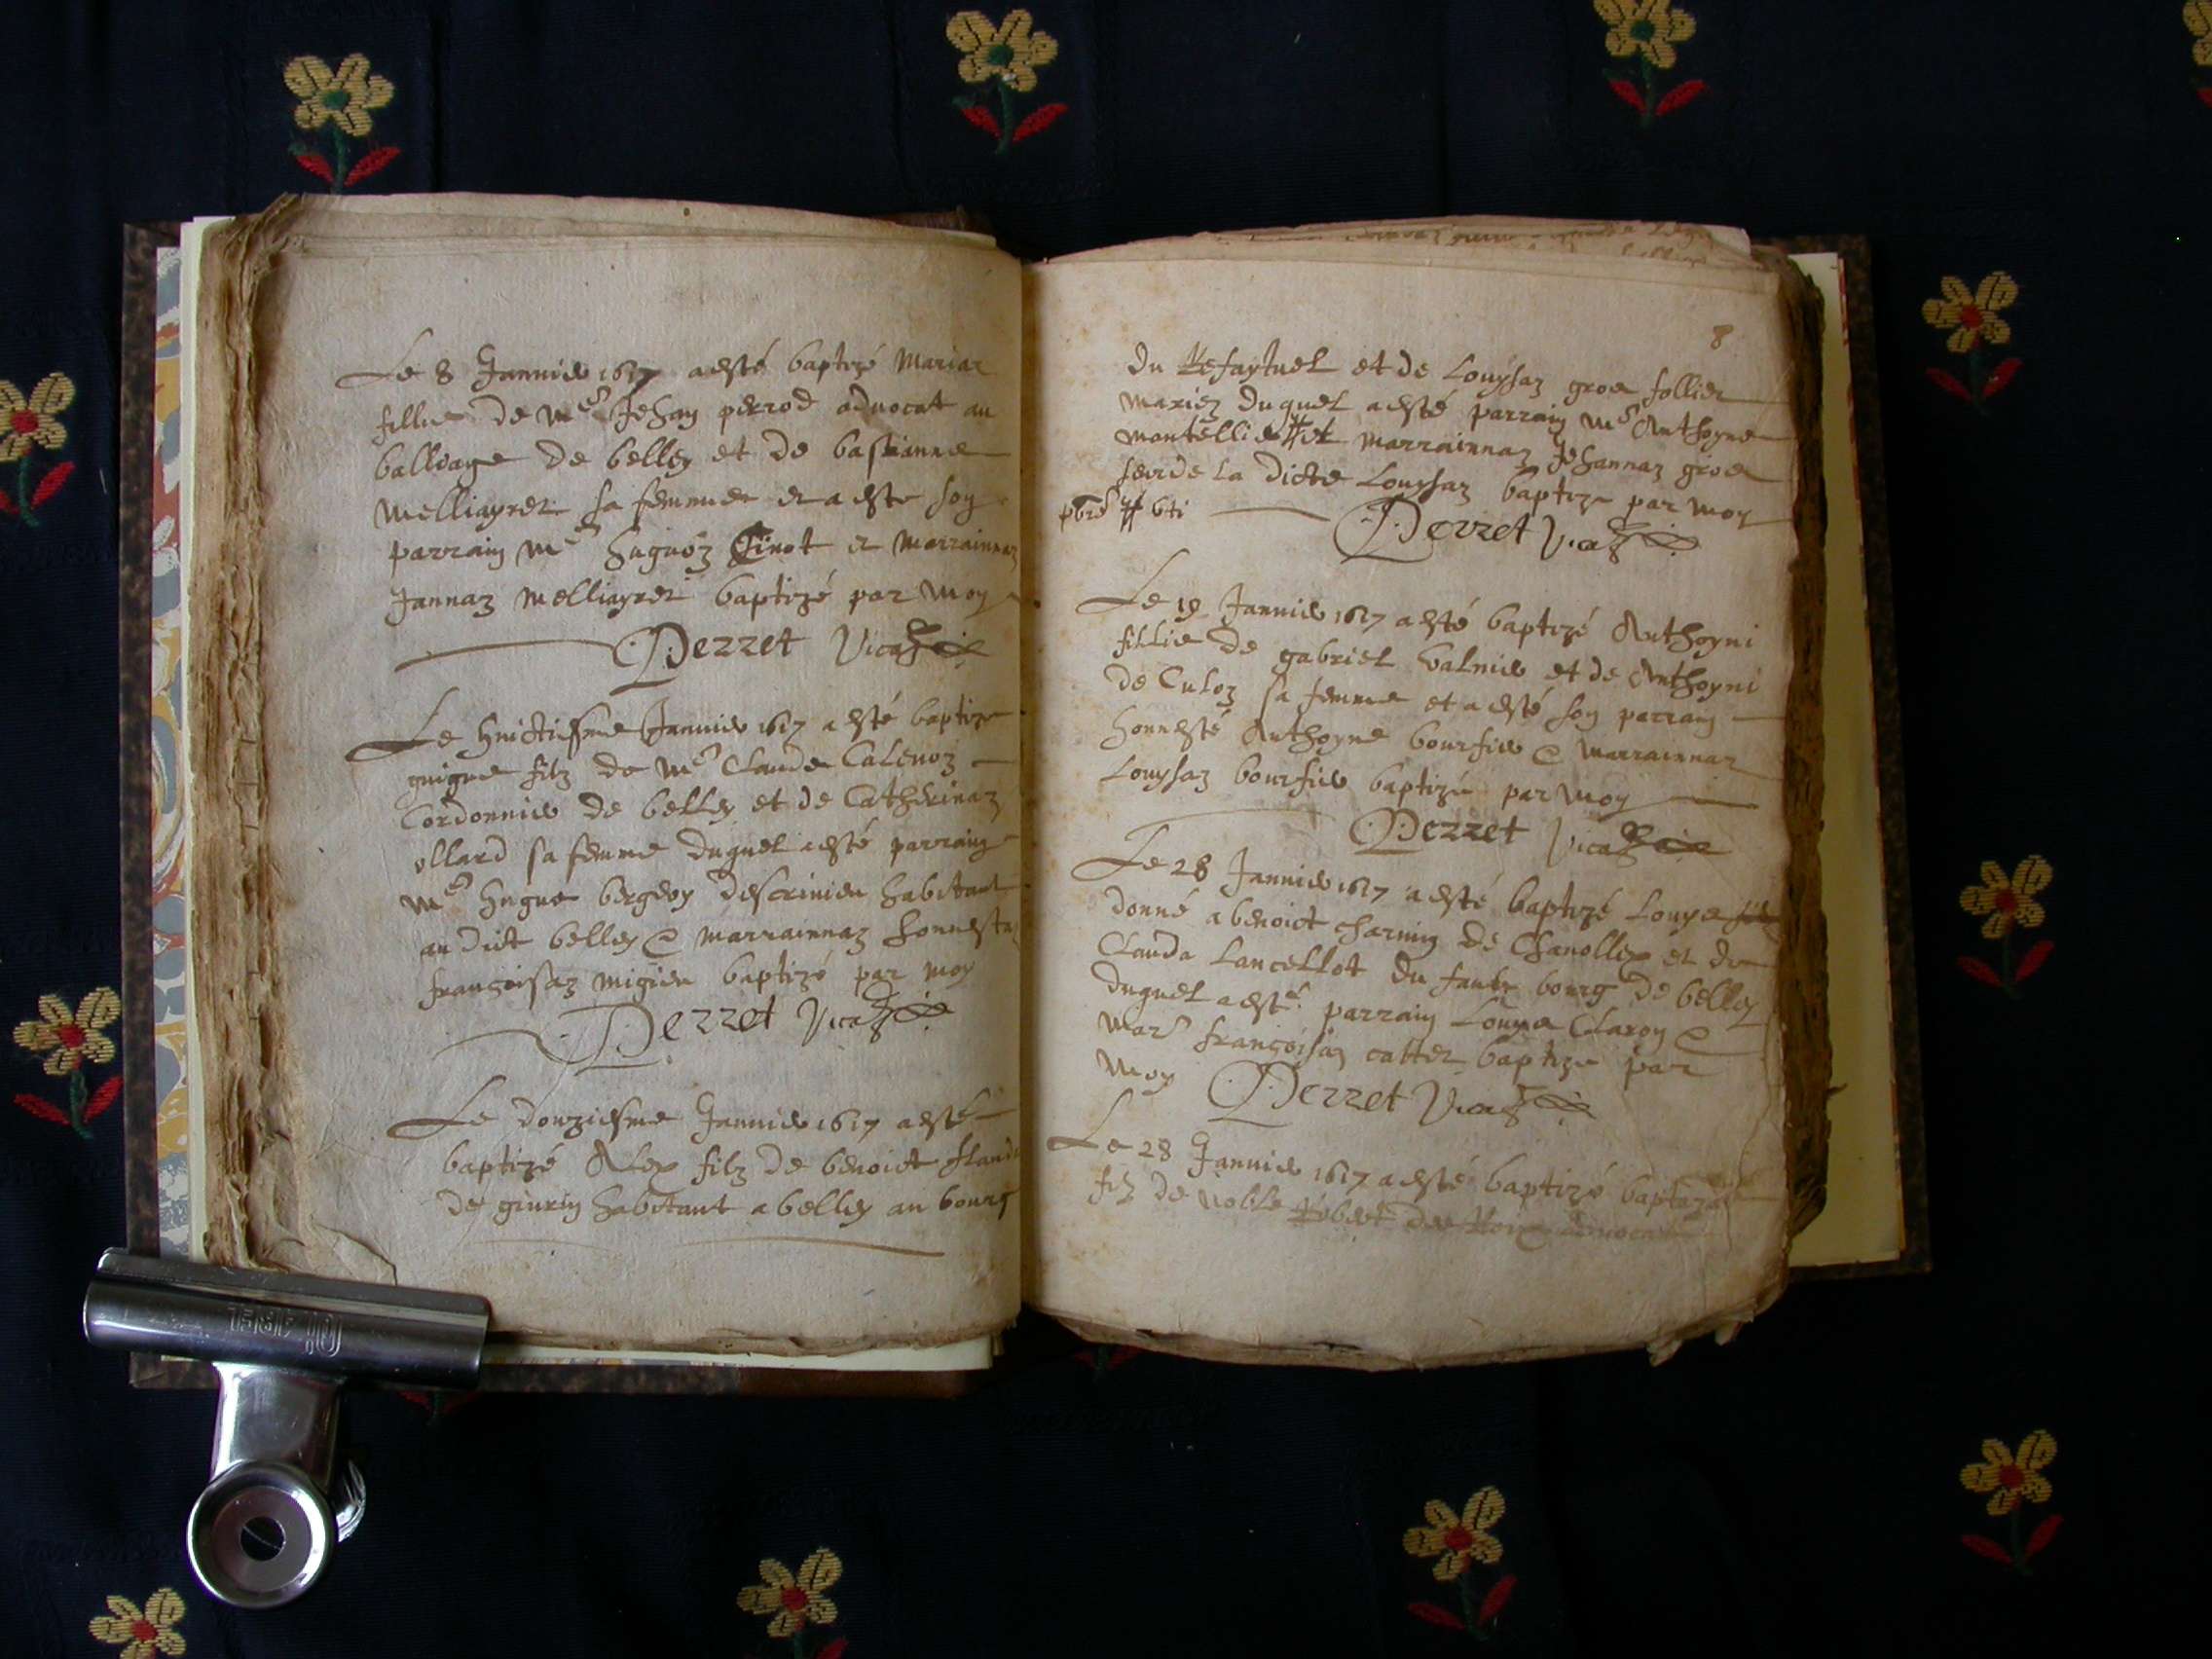 Le 8 Janvier 1617 a esté baptizé Mariaz
fillie de Me Jehan perrod advocat au
balliage de belley et de bastianne
Melliayret sa femme et a este son
parrain Me huguoz Tinot et Marrainnaz
Jannaz Melliayret baptizé par moy
Perret Vicaire
Le huictiesme Janvier 1617 a esté baptize
guigue filz de Me Claude Calenoz
Cordonnier de belley et de Catherinaz
ollard sa femme duquel a esté parrain
Me hugue bergeoy descrinieu habitant
au dict belley & marrainnaz honneste
françoisaz migieu baptizé par moy
Perret Vicaire
Le douziesme Janvier 1617 a esté
baptizé Alex filz de benoict
de giurin habitant a belley au bourg
8
du et de Louysaz groz follier
mariez duquel a esté parrain Me Anthoyne
montellier # et marrainnaz Jehannaz groz
seur de la dicte Louysaz baptize par moy
pbre #
Perret Vicaire
Le 19 Janvier 1617 a esté baptizé Anthoyni
fillie de gabriel et de Anthoyni
de Culoz sa femme et a esté son parrain
honnesté Anthoyne boursier & marrainnaz
Louysaz boursier baptizée par moy
Perret Vicaire
Le 28 Janvier 1617 a esté baptizé Louys
donné a benoict charvin de Chanollex et de
Clauda Lancellot du faubz bourg de belley
duquel a esté parrain Louys Claron &
mare françoisaz catter baptize par
moy Perret Vicaire
Le 28 Janvier 1617 a esté baptizé
filz de noble advocat